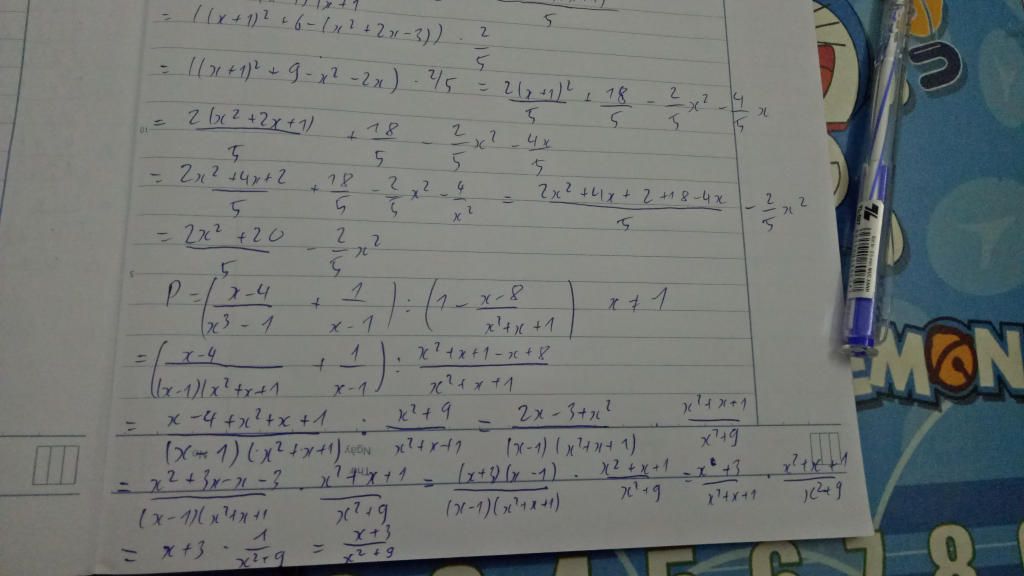 = ((x+1)² + 6 - (x² + 2x - 3)) · 2/5
= ((x+1)² + 9 - x² - 2x) · 2/5 = 2(x+1)²/5 + 18/5 - 2/5 x² - 4/5 x
= 2(x² + 2x + 1)/5 + 18/5 - 2/5 x² - 4x/5
= 2x² + 4x + 2/5 + 18/5 - 2/5 x² - 4/x² = 2x² + 4x + 2 + 18 - 4x/5 - 2/5 x²
= 2x² + 20/5 - 2/5 x²
P = (x-4/x³ - 1 + 1/x-1) : (1 - x-8/x²+x+1) x ≠ 1
= (x-4/(x-1)(x²+x+1 + 1/x-1) : x²+x+1-x+8/x²+x+1
= x-4+x²+x+1/(x-1)(x²+x+1) : x²+9/x²+x+1 = 2x-3+x²/(x-1)(x²+x+1) · x²+x+1/x²+9
= x²+3x-x-3/(x-1)(x²+x+1 · x²+x+1/x²+9 = (x+3)(x-1)/(x-1)(x²+x+1) · x²+x+1/x²+9 = x²+3/x²+x+1 · x²+x+1/x²+9
= x+3 · 1/x²+9 = x+3/x²+9
Ngày
EMON
5 6 7 8